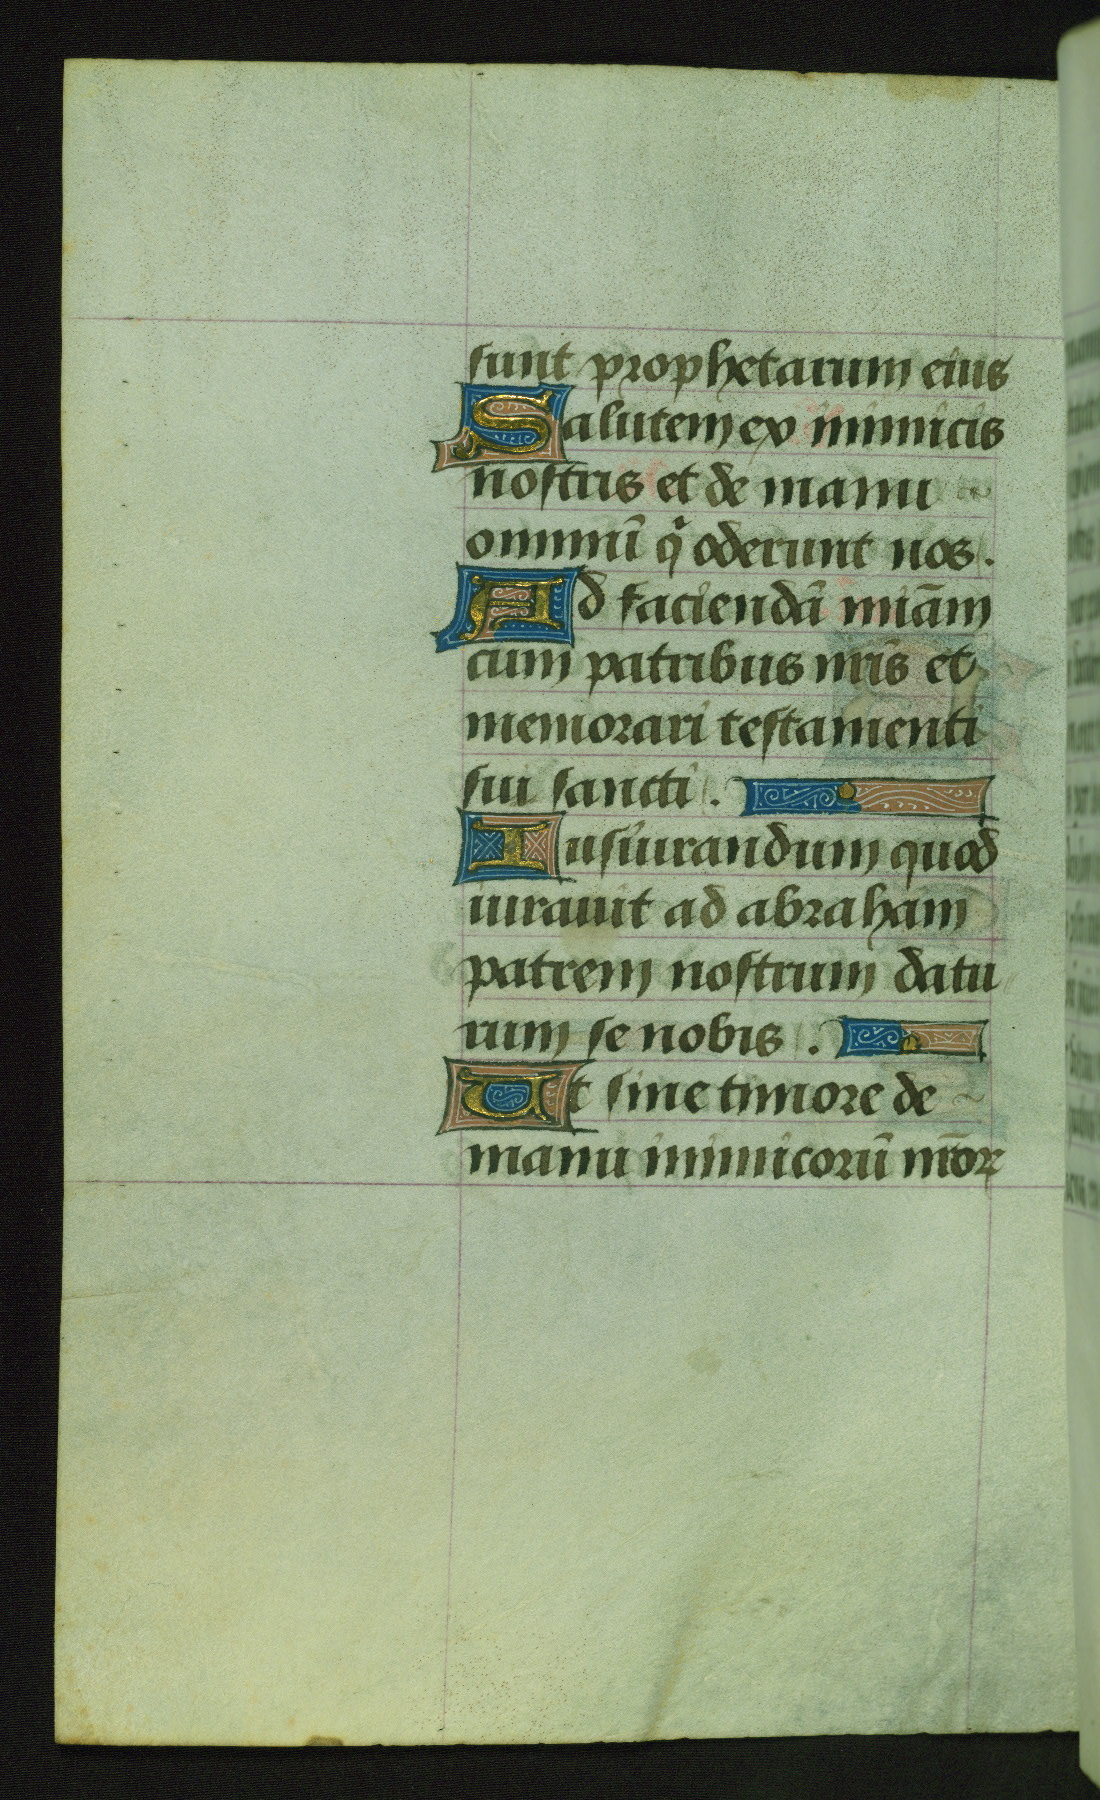 sunt prophetarum eius
Salutem ex inimicis
nostris et de manu
omniũ qͥ oderunt nos.
Ad faciendã miãm
cum patribus nr̃is et
memorari testamenti
sui sancti.
Iusiurandum quod
iurauit ad abraham
patrem nostrum datu
rum se nobis.
Ut sine timore de
manu inimicorũ nr̃oꝝ